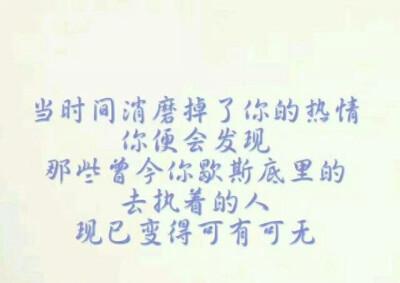 当时间消磨掉了你的热情
你便会发现
那些曾今你歇斯底里的
去执着的人
现已变得可有可无